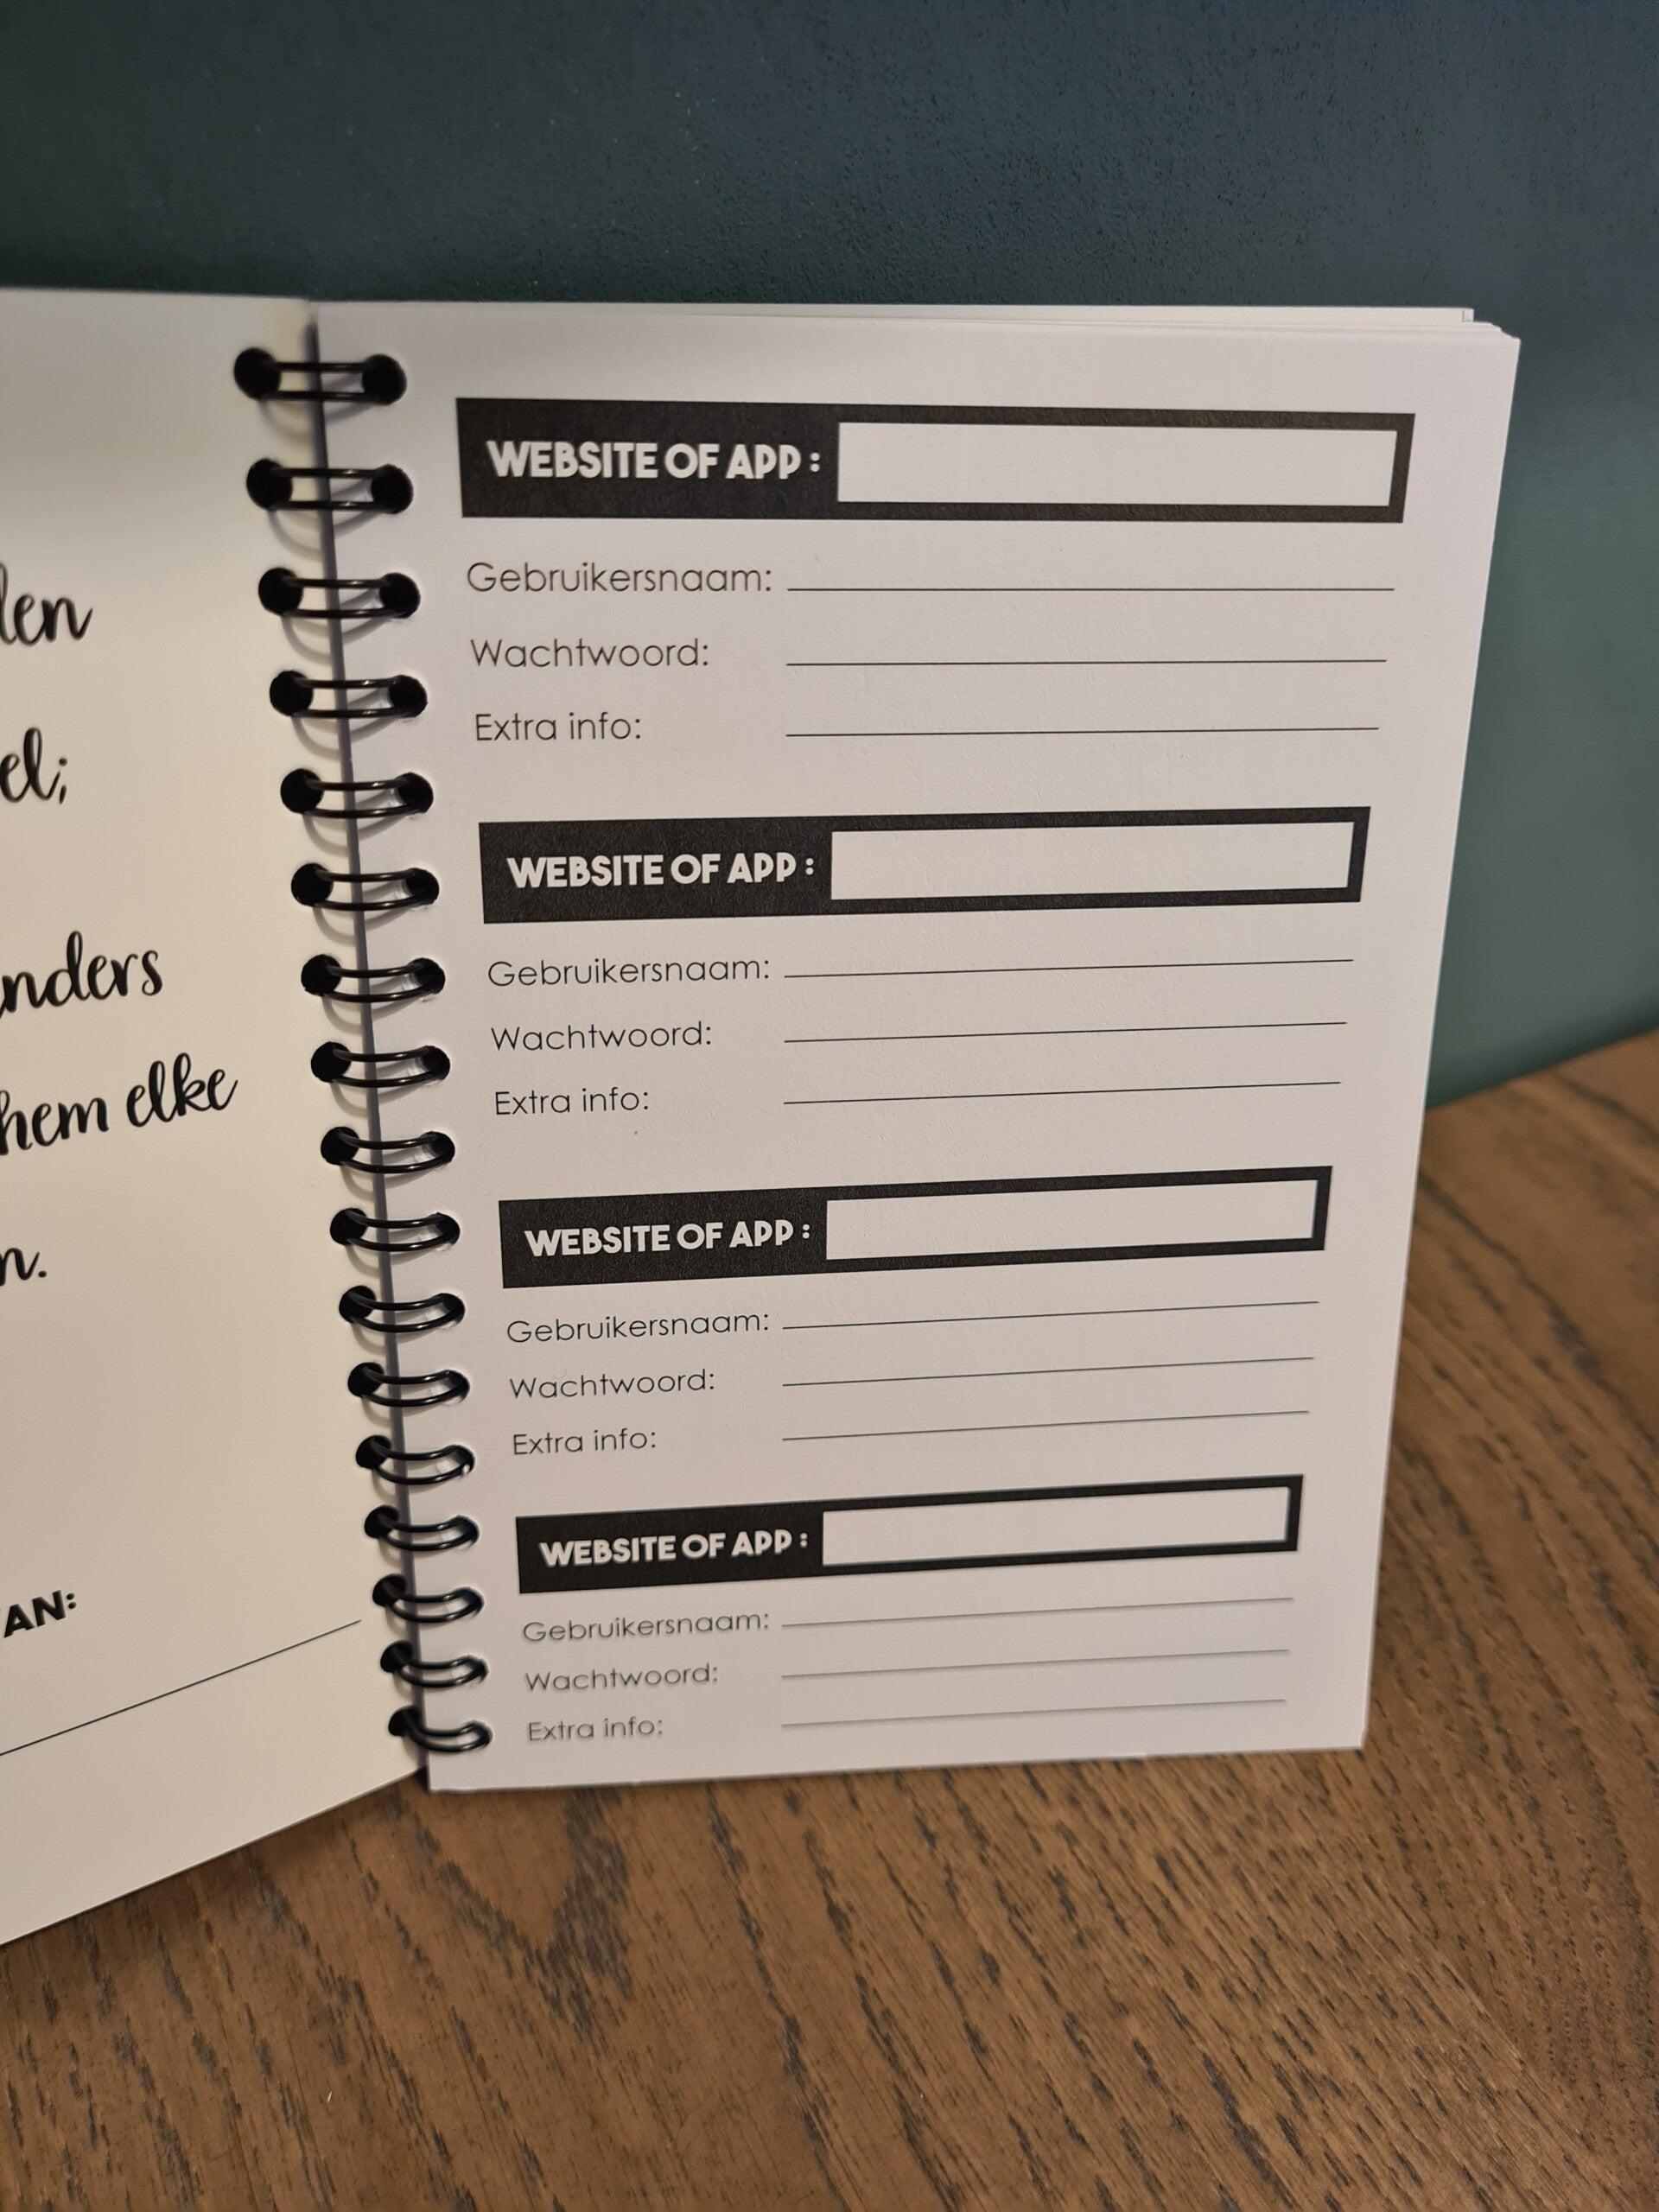 el;
hem elke
WEBSITE OF APP :
Gebruikersnaam:
Wachtwoord:
Extra info:
WEBSITE OF APP :
Gebruikersnaam:
Wachtwoord:
Extra info:
WEBSITE OF APP :
Gebruikersnaam:
Wachtwoord:
Extra info:
WEBSITE OF APP :
Gebruikersnaam:
Wachtwoord:
Extra info: